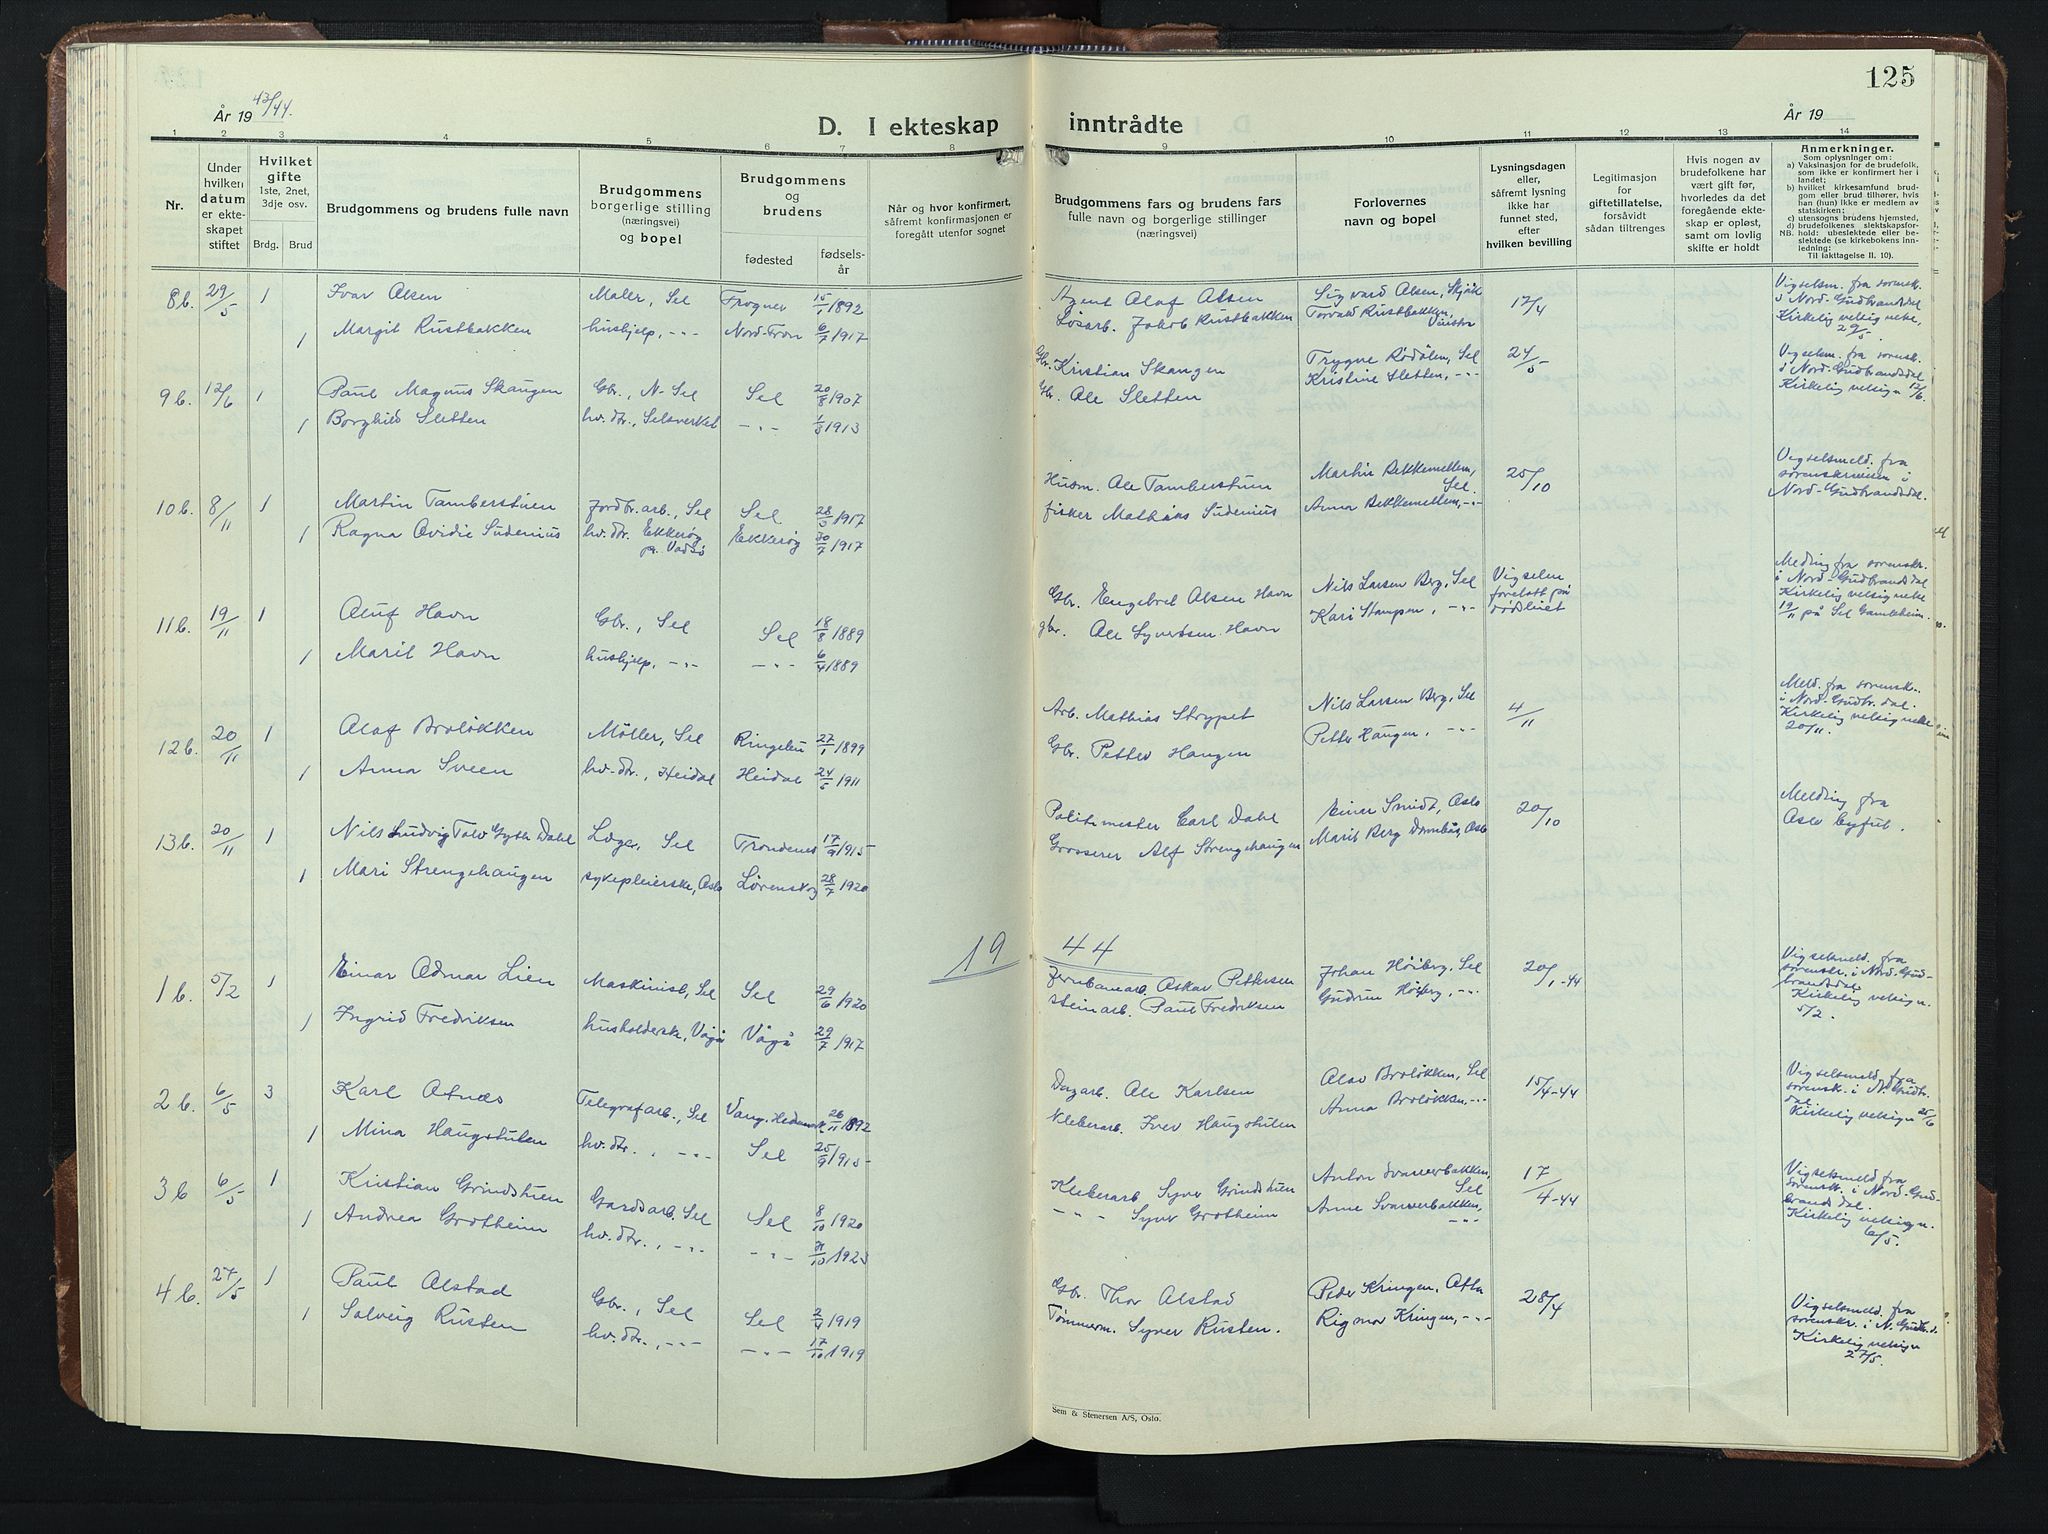 125
År 19 43/44.
D. I ekteskap inntrådte
År 19
1 2 3 4 5 6 7 8 9 10 11 12 13 14
Nr.
Under hvilken datum er ekteskapet stiftet
Hvilket gifte 1ste, 2net, 3dje osv.
Brdg. Brud
Brudgommens og brudens fulle navn
Brudgommens borgerlige stilling (næringsvei) og bopel
Brudgommens og brudens
fødested fødselsår
Når og hvor konfirmert, såfremt konfirmasjonen er foregått utenfor sognet
Brudgommens fars og brudens fars fulle navn og borgerlige stillinger (næringsvei)
Forlovernes navn og bopel
Lysningsdagen eller, såfremt lysning ikke har funnet sted, efter hvilken bevilling
Legitimasjon for giftetillatelse, forsåvidt sådan tiltrenges
Hvis nogen av brudefolkene har vært gift før, hvorledes da det foregående ekteskap er opløst, samt om lovlig skifte er holdt
Anmerkninger.
Som oplysninger om:
a) Vaksinasjon for de brudefolk, som ikke er konfirmert her i landet;
b) hvilket kirkesamfund brudgom eller brud tilhører, hvis han (hun) ikke er medlem av statskirken;
c) utensogns brudens hjemsted,
d) brudefolkenes slektskapsforhold: ubeslektede eller beslektede (se kirkebokens innledning:
NB. Til iakttagelse II. 10).
8b. 29/5 1 Ivar Olsen Maler, Sel Frogner 15/1 1892 Agent Olaf Olsen Sigvard Olsen, Skjåk 17/4 Vigselsm. fra sorensk. i Nord-Gudbrandsdal Kirkelig velsignelse, 29/5.
1 Margit Rustbakken hushjelp, -"- Nord-Fron 6/7 1917 Løsarb. Jakob Rustbakken Torvald Rustbakken,
9b. 12/6 1 Paul Magnus Skaugen Gbr., N-Sel Sel 20/8 1907 Gbr. Kristian Skaugen Trygve Rødølen, Sel 24/5 Vigselsm. fra sorensk. i Nord-Gudbrandsdal Kirkelig velsign. 12/6.
1 Borghild Sletten hv. dtr., Selsverket -"- 1/3 1913 Gbr. Ole Sletten Kristine Sletten, -"-
10b. 8/11 1 Martin Tamberstuen Jordbr.arb., Sel Sel 28/5 1917 Husm. Ole Tamberstuen Martin Bekkemellem, Sel 25/10 Vigselsmeld. fra sorenskriveren i Nord-Gudbrandsdal.
1 Ragna Ovidie Sudenius hv. dtr. Ekkerøy pr. Vadsø Ekkerøy 30/7 1917 fisker Mathias Sudenius Anna Bekkemellem, -"-
11b. 19/11 1 Oluf Havn Gbr., Sel Sel 18/8 1889 Gbr. Engebret Olsen Havn Nils Larsen Berg, Sel Vigselen foretatt på rådhuset Melding fra sorenskr. i Nord-Gudbrandsdal Kirkelig velsignelse 19/11 på Sel Gamleheim.
1 Marit Havn hushjelp, -"- -"- 6/4 1889 gbr. Ole Syversen Havn Kari Stampen, -"-
12b. 20/11 1 Olaf Broløkken Møller, Sel Ringebu 27/1 1899 Arb. Mathias Strypet Nils Larsen Berg, Sel 4/11 Meld. fra sorensk. i Nord-Gudbr.dal. Kirkelig velsignelse 20/11.
1 Anna Sveen hv. dtr., Heidal Heidal 24/5 1911 Gbr. Petter Haugen Petter Haugen, -"-
13b. 20/11 1 Nils Ludvig Gyth Dahl Læge, Sel Trondenes 17/9 1915 Politimester Carl Dahl Einar Smidt, Oslo 20/10 Melding fra Oslo byfut.
1 Mari Strengehaugen sykepleierske, Oslo Lørenskog 28/7 1920 Grosserer Alf Strengehaugen Marit Berg Dombås, Oslo
19 44
1b. 5/2 1 Einar Odmar Lien Maskinist, Sel Sel 29/6 1920 Jernbanearb. Oskar Pettersen Johan Høiberg, Sel 20/1-44 Vigselsmeld. fra sorenskr. i Nord-Gudbrandsdal Kirkelig velsign. 5/2.
1 Ingrid Fredriksen husholdersk, Vågå Vågå 29/7 1917 Steinarb. Paul Fredriksen Gudrun Høiberg, -"-
2b. 6/5 3 Karl Atnes Telegrafarb., Sel Vang, Hedemark 26/11 1892 Dagarb. Ole Karlsen Olav Broløkken, Sel 15/4-44 Vigselsmeld. fra sorensk. i N. Gudbr.dal. Kirkelig velsign 25/6
1 Mina Haugstulen hv. dtr., -"- Sel 25/9 1915 Kleberarb. Iver Haugstulen Anna Broløkken, -"-
3b 6/5 1 Kristian Grindstuen Gardsarb. Sel Sel 8/10 1920 Kleberarb Syver Grindstuen Anton Svarverbakken, Sel 17/4-44 Vigselsmeld fra sorensk. i Nord-Gudbrandsdal. Kirkelig velsign. 6/5.
1 Andrea Grotheim hv. dtr., -"- -"- 1923 -"- Syver Grotheim Anne Svarverbakken, -"-
4b. 27/5 1 Paul Olstad Gbr., Sel Sel 2/4 1919 Gbr. Thor Olstad Peder Kringen, Otta 28/4 Vigselsmeld. fra sorenskr. i N. Gudbr.d. Kirkelig velsign 27/5.
1 Solveig Rusten hv. dtr., -"- -"- 17/10 1919 Tømmerm. Syver Rusten. Rigmor Kringen, -"-
Sem & Stenersen A/S, Oslo.